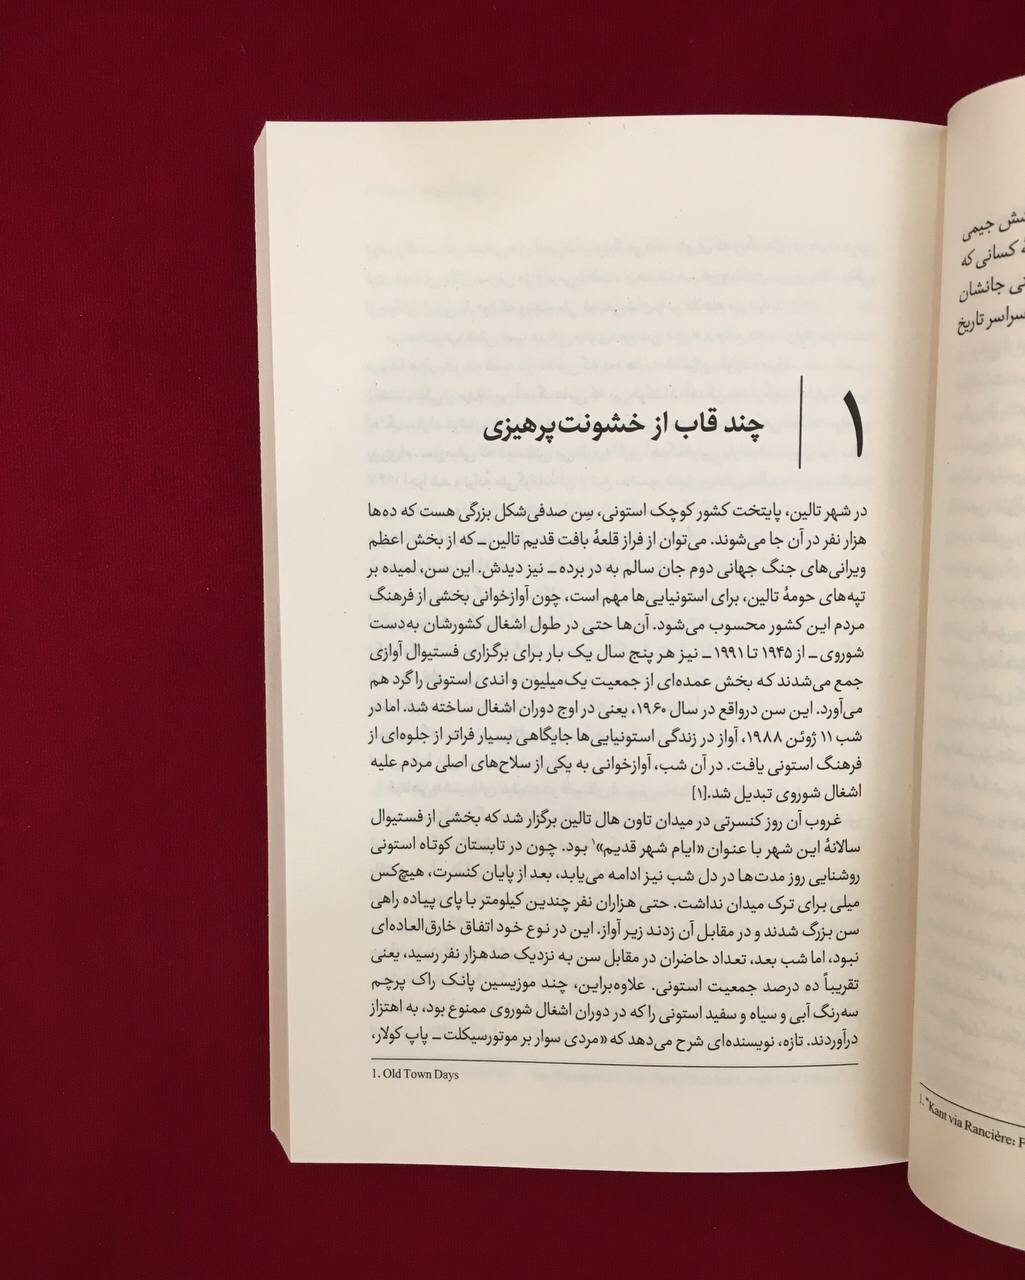 ۱
چند قاب از خشونت‌پرهیزی
در شهر تالین، پایتخت کشور کوچک استونی، سِن صدفی‌شکل بزرگی هست که ده‌ها
هزار نفر در آن جا می‌شوند. می‌توان از فراز قلعهٔ بافت قدیم تالین ــ که از بخش اعظم
ویرانی‌های جنگ جهانی دوم جان سالم به در برده ــ نیز دیدش. این سن، لمیده بر
تپه‌های حومهٔ تالین، برای استونیایی‌ها مهم است، چون آوازخوانی بخشی از فرهنگ
مردم این کشور محسوب می‌شود. آن‌ها حتی در طول اشغال کشورشان به‌دست
شوروی ــ از ۱۹۴۵ تا ۱۹۹۱ ــ نیز هر پنج سال یک بار برای برگزاری فستیوال آوازی
جمع می‌شدند که بخش عمده‌ای از جمعیت یک‌میلیون و اندی استونی را گرد هم
می‌آورد. این سن درواقع در سال ۱۹۶۰، یعنی در اوج دوران اشغال ساخته شد. اما در
شب ۱۱ ژوئن ۱۹۸۸، آواز در زندگی استونیایی‌ها جایگاهی بسیار فراتر از جلوه‌ای از
فرهنگ استونی یافت. در آن شب، آوازخوانی به یکی از سلاح‌های اصلی مردم علیه
اشغال شوروی تبدیل شد.[۱]
غروب آن روز کنسرتی در میدان تاون هال تالین برگزار شد که بخشی از فستیوال
سالانهٔ این شهر با عنوان «ایام شهر قدیم»۱ بود. چون در تابستان کوتاه استونی
روشنایی روز مدت‌ها در دل شب نیز ادامه می‌یابد، بعد از پایان کنسرت، هیچ‌کس
میلی برای ترک میدان نداشت. حتی هزاران نفر چندین کیلومتر با پای پیاده راهی
سن بزرگ شدند و در مقابل آن زدند زیر آواز. این در نوع خود اتفاق خارق‌العاده‌ای
نبود، اما شب بعد، تعداد حاضران در مقابل سن به نزدیک صدهزار نفر رسید، یعنی
تقریباً ده درصد جمعیت استونی. علاوه‌براین، چند موزیسین پانک راک پرچم
سه‌رنگ آبی و سیاه و سفید استونی را که در دوران اشغال شوروی ممنوع بود، به اهتزاز
درآوردند. تازه، نویسنده‌ای شرح می‌دهد که «مردی سوار بر موتورسیکلت ــ پاپ کولار،
1. Old Town Days
جیمی
کسانی که
جانشان
سراسر تاریخ
1. "Kant via Rancière: F